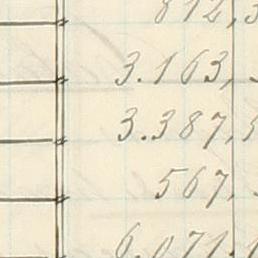 812,
3.163,
3.387,5
567,
6.071.1